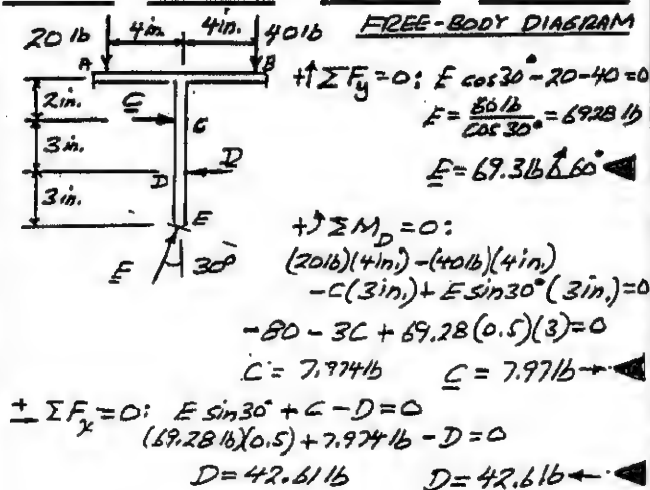 FREE-BODY DIAGRAM
20 lb 4in. 4in. 40 lb
A B
2in.
C C
3in.
D D
3in.
E
E 30°
+↑ΣFy=0: E cos30°-20-40=0
E = 60 lb / cos 30° = 69.28 lb
E = 69.3 lb ∡60° ◀
+↺ΣM_D=0:
(20lb)(4in.)-(40lb)(4in.)
-C(3in.)+E sin30°(3in.)=0
-80-3C+69.28(0.5)(3)=0
C = 7.974lb C = 7.97lb→ ◀
+→ ΣFx=0: E sin30°+C-D=0
(69.28 lb)(0.5)+7.974 lb-D=0
D=42.61 lb D=42.6 lb← ◀